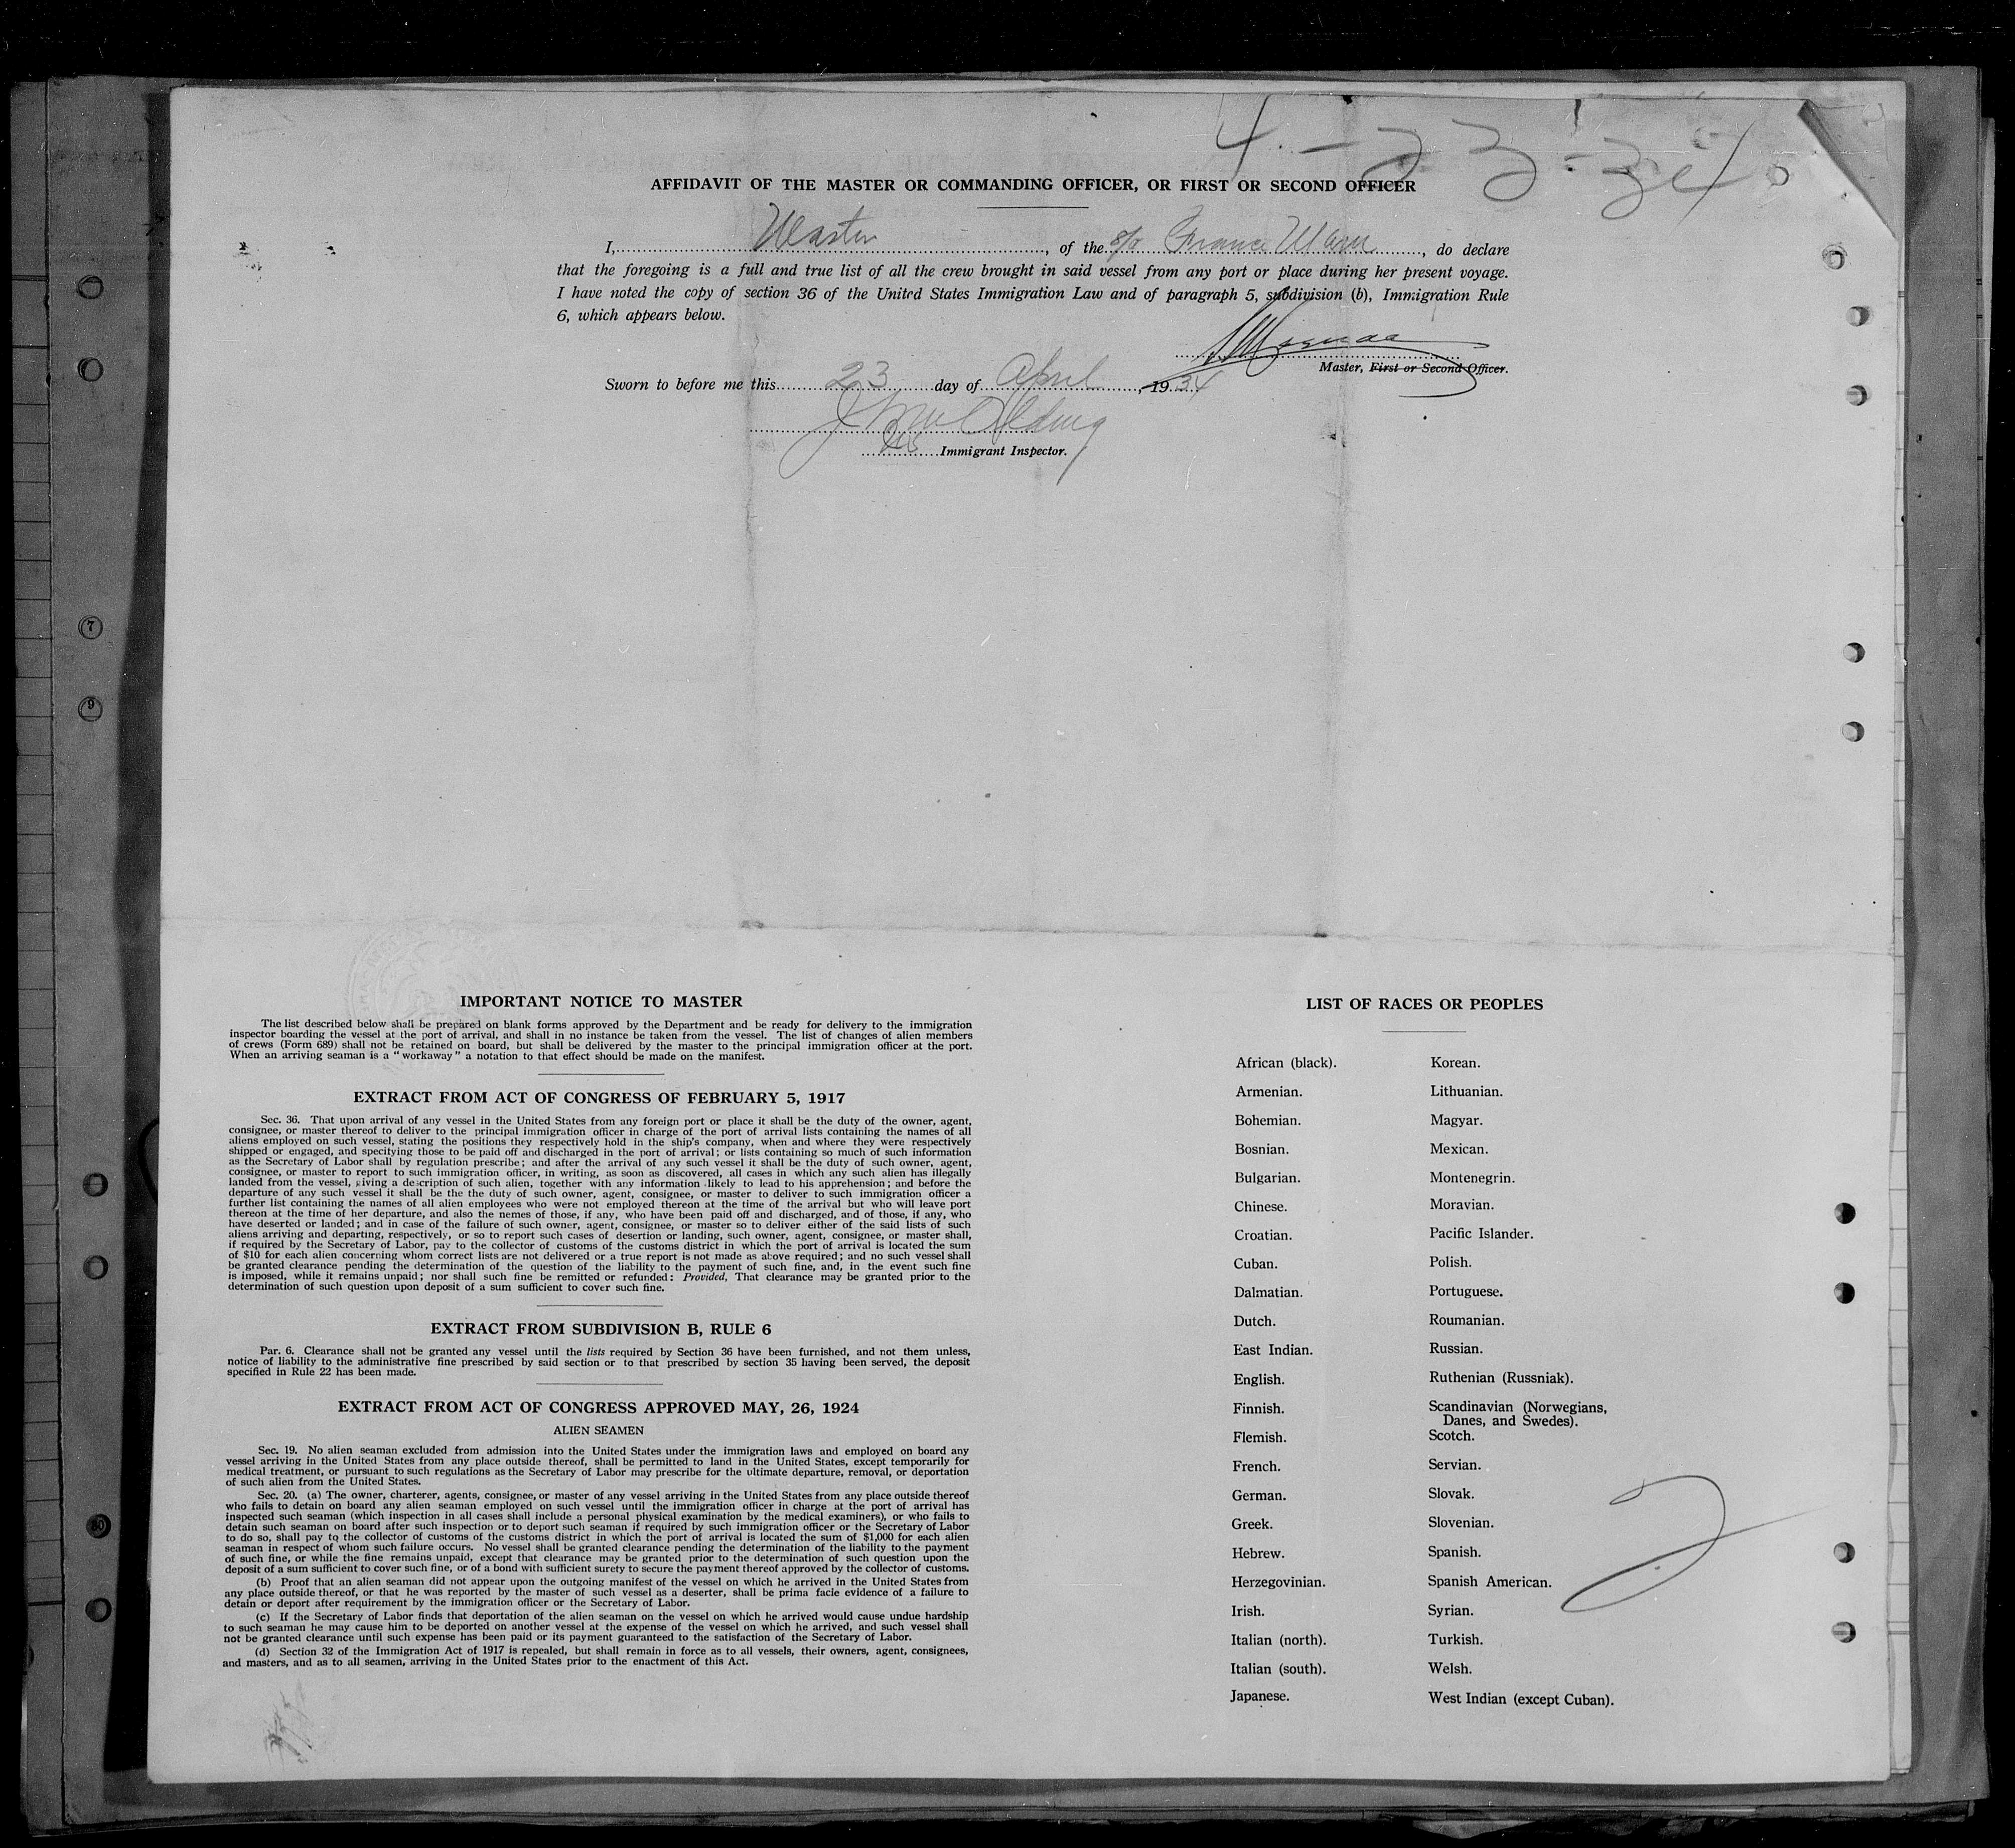 4-23-34
AFFIDAVIT OF THE MASTER OR COMMANDING OFFICER, OR FIRST OR SECOND OFFICER
I, Master, of the s/s Maru, do declare
that the foregoing is a full and true list of all the crew brought in said vessel from any port or place during her present voyage.
I have noted the copy of section 36 of the United States Immigration Law and of paragraph 5, subdivision (b), Immigration Rule
6, which appears below.
Master, First or Second Officer.
Sworn to before me this 23 day of April, 1934
Immigrant Inspector.
IMPORTANT NOTICE TO MASTER
The list described below shall be prepared on blank forms approved by the Department and be ready for delivery to the immigration
inspector boarding the vessel at the port of arrival, and shall in no instance be taken from the vessel. The list of changes of alien members
of crews (Form 689) shall not be retained on board, but shall be delivered by the master to the principal immigration officer at the port.
When an arriving seaman is a "workaway" a notation to that effect should be made on the manifest.
EXTRACT FROM ACT OF CONGRESS OF FEBRUARY 5, 1917
Sec. 36. That upon arrival of any vessel in the United States from any foreign port or place it shall be the duty of the owner, agent,
consignee, or master thereof to deliver to the principal immigration officer in charge of the port of arrival lists containing the names of all
aliens employed on such vessel, stating the positions they respectively hold in the ship's company, when and where they were respectively
shipped or engaged, and specifying those to be paid off and discharged in the port of arrival; or lists containing so much of such information
as the Secretary of Labor shall by regulation prescribe; and after the arrival of any such vessel it shall be the duty of such owner, agent,
consignee, or master to report to such immigration officer, in writing, as soon as discovered, all cases in which any such alien has illegally
landed from the vessel, giving a description of such alien, together with any information likely to lead to his apprehension; and before the
departure of any such vessel it shall be the the duty of such owner, agent, consignee, or master to deliver to such immigration officer a
further list containing the names of all alien employees who were not employed thereon at the time of the arrival but who will leave port
thereon at the time of her departure, and also the nemes of those, if any, who have been paid off and discharged, and of those, if any, who
have deserted or landed; and in case of the failure of such owner, agent, consignee, or master so to deliver either of the said lists of such
aliens arriving and departing, respectively, or so to report such cases of desertion or landing, such owner, agent, consignee, or master shall,
if required by the Secretary of Labor, pay to the collector of customs of the customs district in which the port of arrival is located the sum
of $10 for each alien concerning whom correct lists are not delivered or a true report is not made as above required; and no such vessel shall
be granted clearance pending the determination of the question of the liability to the payment of such fine, and, in the event such fine
is imposed, while it remains unpaid; nor shall such fine be remitted or refunded: Provided, That clearance may be granted prior to the
determination of such question upon deposit of a sum sufficient to cover such fine.
EXTRACT FROM SUBDIVISION B, RULE 6
Par. 6. Clearance shall not be granted any vessel until the lists required by Section 36 have been furnished, and not them unless,
notice of liability to the administrative fine prescribed by said section or to that prescribed by section 35 having been served, the deposit
specified in Rule 22 has been made.
EXTRACT FROM ACT OF CONGRESS APPROVED MAY, 26, 1924
ALIEN SEAMEN
Sec. 19. No alien seaman excluded from admission into the United States under the immigration laws and employed on board any
vessel arriving in the United States from any place outside thereof, shall be permitted to land in the United States, except temporarily for
medical treatment, or pursuant to such regulations as the Secretary of Labor may prescribe for the ultimate departure, removal, or deportation
of such alien from the United States.
Sec. 20. (a) The owner, charterer, agents, consignee, or master of any vessel arriving in the United States from any place outside thereof
who fails to detain on board any alien seaman employed on such vessel until the immigration officer in charge at the port of arrival has
inspected such seaman (which inspection in all cases shall include a personal physical examination by the medical examiners), or who fails to
detain such seaman on board after such inspection or to deport such seaman if required by such immigration officer or the Secretary of Labor
to do so, shall pay to the collector of customs of the customs district in which the port of arrival is located the sum of $1,000 for each alien
seaman in respect of whom such failure occurs. No vessel shall be granted clearance pending the determination of the liability to the payment
of such fine, or while the fine remains unpaid, except that clearance may be granted prior to the determination of such question upon the
deposit of a sum sufficient to cover such fine, or of a bond with sufficient surety to secure the payment thereof approved by the collector of customs.
(b) Proof that an alien seaman did not appear upon the outgoing manifest of the vessel on which he arrived in the United States from
any place outside thereof, or that he was reported by the master of such vessel as a deserter, shall be prima facie evidence of a failure to
detain or deport after requirement by the immigration officer or the Secretary of Labor.
(c) If the Secretary of Labor finds that deportation of the alien seaman on the vessel on which he arrived would cause undue hardship
to such seaman he may cause him to be deported on another vessel at the expense of the vessel on which he arrived, and such vessel shall
not be granted clearance until such expense has been paid or its payment guaranteed to the satisfaction of the Secretary of Labor.
(d) Section 32 of the Immigration Act of 1917 is repealed, but shall remain in force as to all vessels, their owners, agent, consignees,
and masters, and as to all seamen, arriving in the United States prior to the enactment of this Act.
LIST OF RACES OR PEOPLES
African (black).
Armenian.
Bohemian.
Bosnian.
Bulgarian.
Chinese.
Croatian.
Cuban.
Dalmatian.
Dutch.
East Indian.
English.
Finnish.
Flemish.
French.
German.
Greek.
Hebrew.
Herzegovinian.
Irish.
Italian (north).
Italian (south).
Japanese.
Korean.
Lithuanian.
Magyar.
Mexican.
Montenegrin.
Moravian.
Pacific Islander.
Polish.
Portuguese.
Roumanian.
Russian.
Ruthenian (Russniak).
Scandinavian (Norwegians,
Danes, and Swedes).
Scotch.
Servian.
Slovak.
Slovenian.
Spanish.
Spanish American.
Syrian.
Turkish.
Welsh.
West Indian (except Cuban).
2
7
9